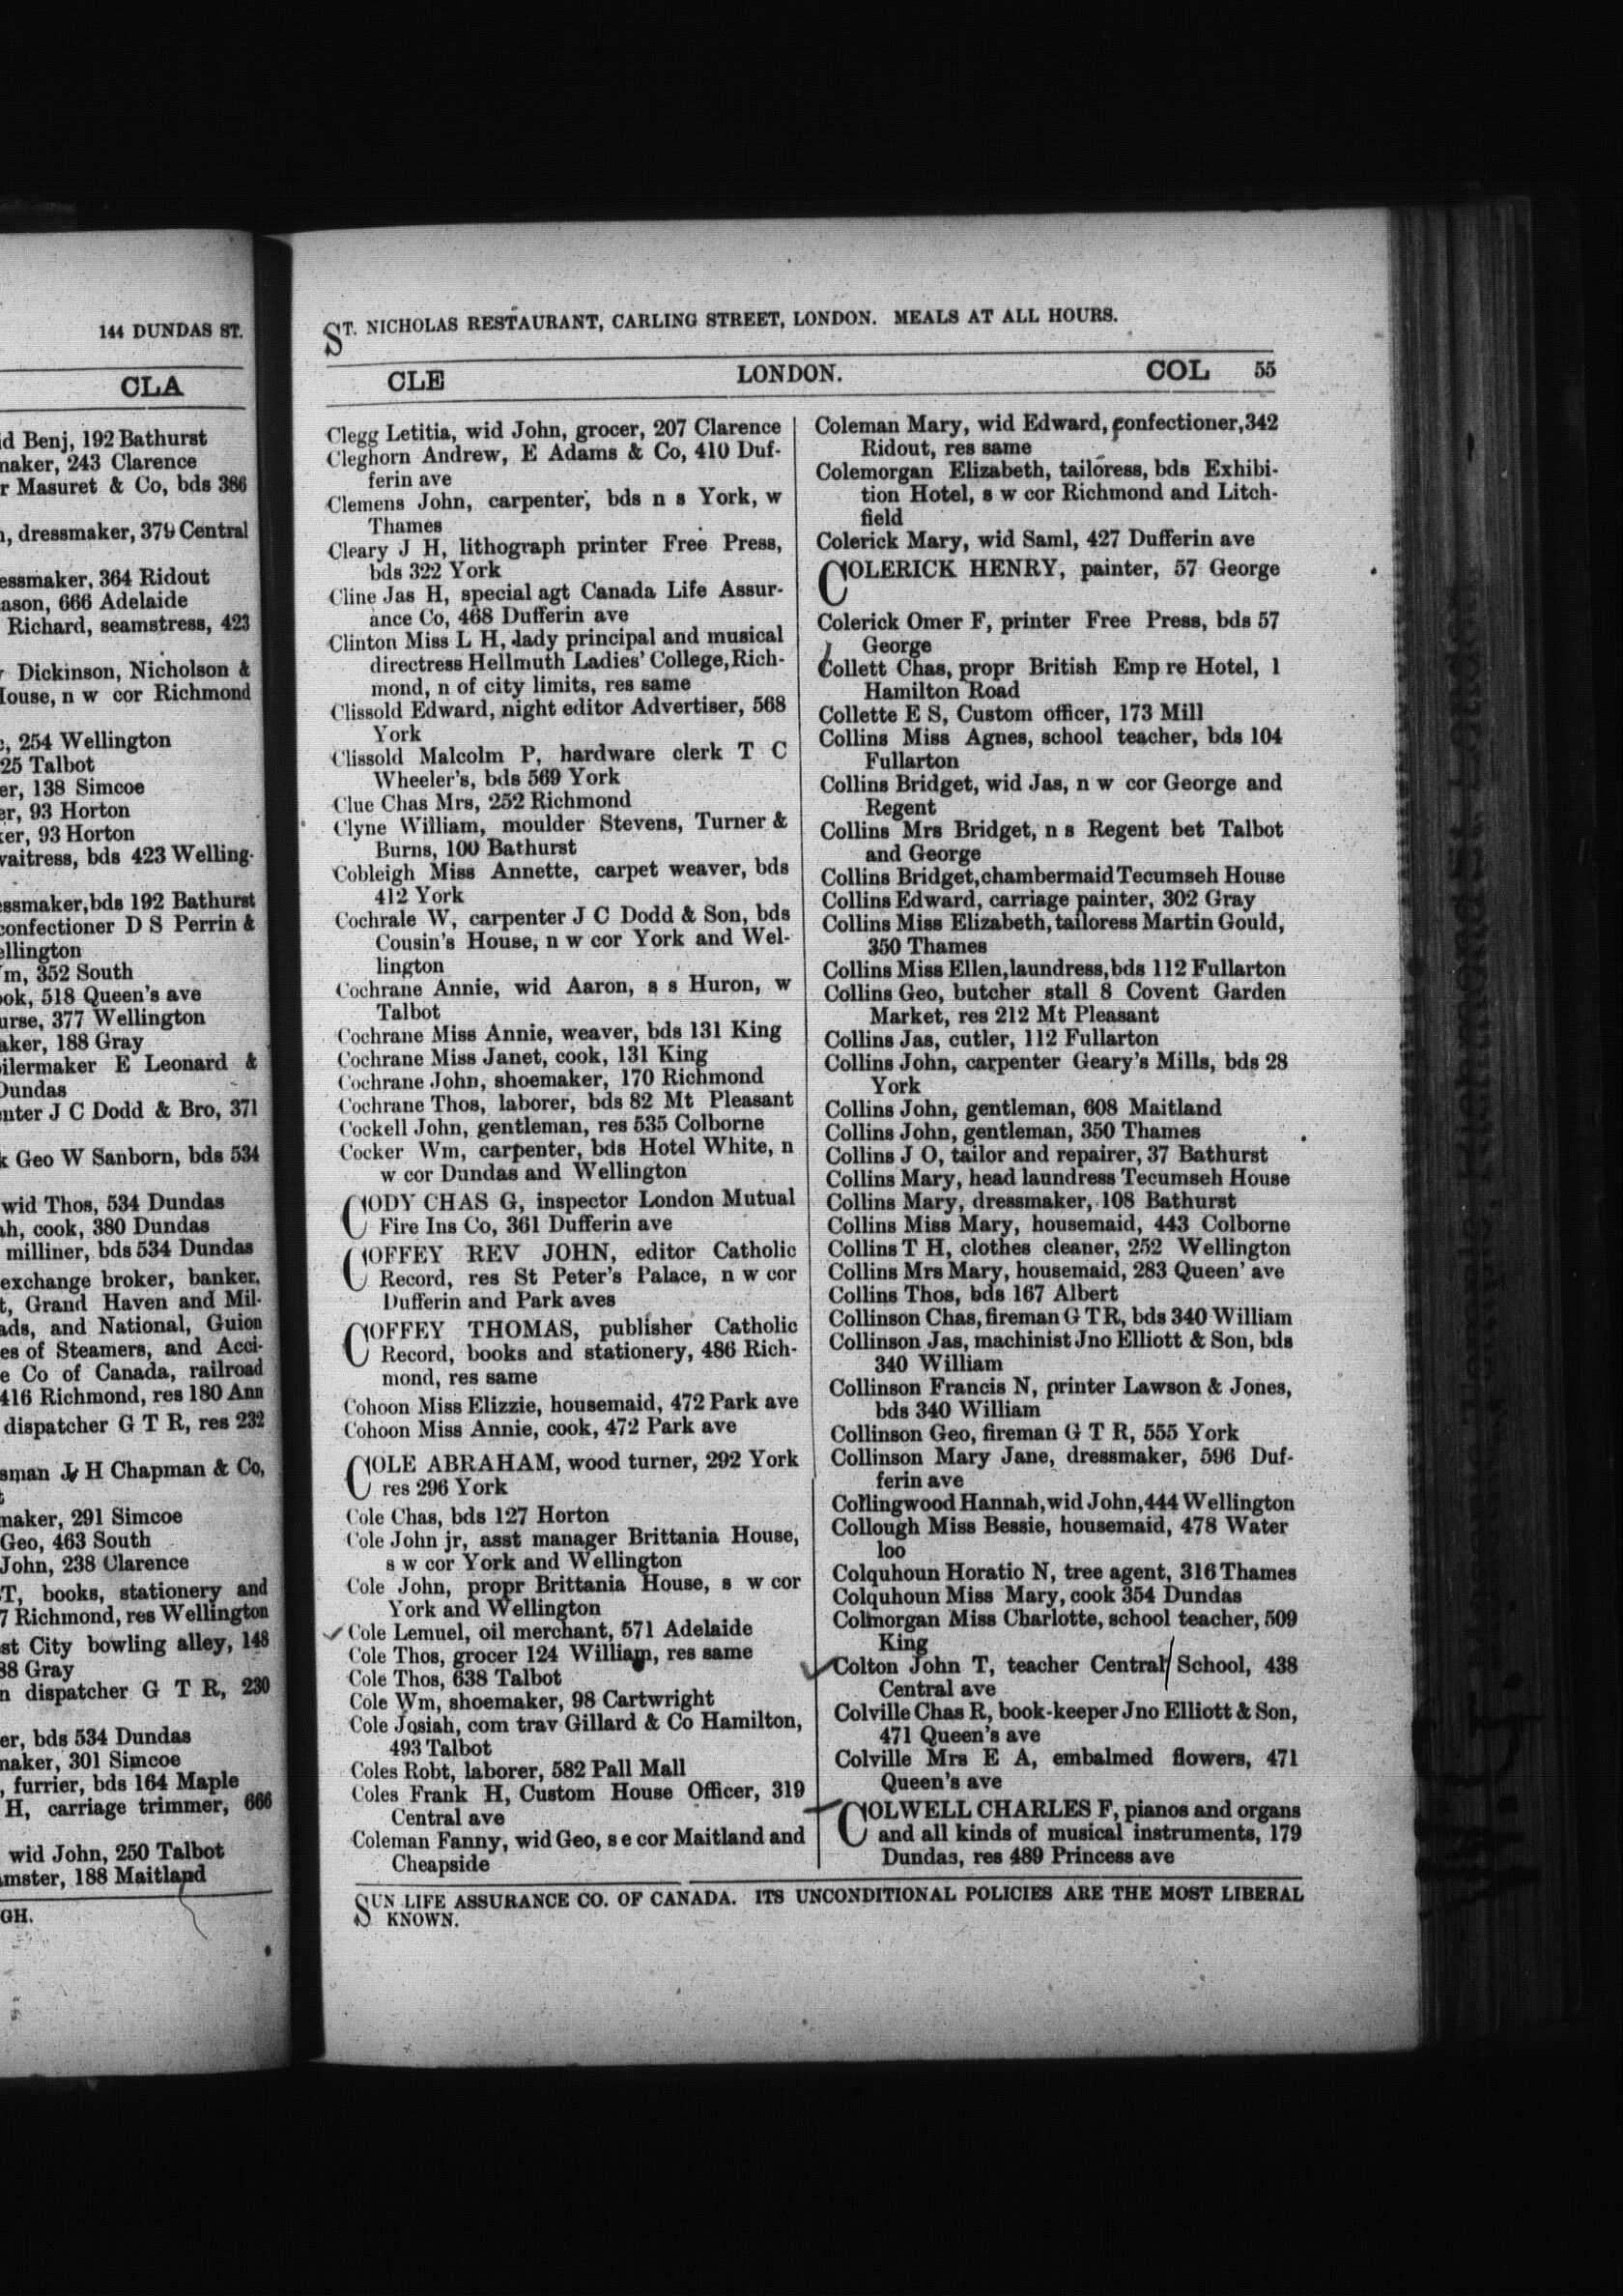 144 DUNDAS ST.
CLA
id Benj, 192 Bathurst
maker, 243 Clarence
r Masuret & Co, bds 386
n, dressmaker, 379 Central
essmaker, 364 Ridout
ason, 666 Adelaide
Richard, seamstress, 423
Dickinson, Nicholson &
House, n w cor Richmond
c, 254 Wellington
25 Talbot
er, 138 Simcoe
er, 93 Horton
ker, 93 Horton
waitress, bds 423 Welling-
essmaker, bds 192 Bathurst
confectioner D S Perrin &
ellington
m, 352 South
ook, 518 Queen's ave
urse, 377 Wellington
aker, 188 Gray
oilermaker E Leonard &
Dundas
nter J C Dodd & Bro, 371
k Geo W Sanborn, bds 534
wid Thos, 534 Dundas
ah, cook, 380 Dundas
milliner, bds 534 Dundas
exchange broker, banker,
t, Grand Haven and Mil-
ads, and National, Guion
es of Steamers, and Acci-
e Co of Canada, railroad
416 Richmond, res 180 Ann
dispatcher G T R, res 232
sman J H Chapman & Co,
maker, 291 Simcoe
Geo, 463 South
John, 238 Clarence
T, books, stationery and
7 Richmond, res Wellington
st City bowling alley, 148
38 Gray
n dispatcher G T R, 230
er, bds 534 Dundas
maker, 301 Simcoe
, furrier, bds 164 Maple
H, carriage trimmer, 666
wid John, 250 Talbot
amster, 188 Maitland
GH.
ST. NICHOLAS RESTAURANT, CARLING STREET, LONDON. MEALS AT ALL HOURS.
CLE LONDON. COL 55
Clegg Letitia, wid John, grocer, 207 Clarence
Cleghorn Andrew, E Adams & Co, 410 Duf-
ferin ave
Clemens John, carpenter, bds n s York, w
Thames
Cleary J H, lithograph printer Free Press,
bds 322 York
Cline Jas H, special agt Canada Life Assur-
ance Co, 468 Dufferin ave
Clinton Miss L H, lady principal and musical
directress Hellmuth Ladies' College, Rich-
mond, n of city limits, res same
Clissold Edward, night editor Advertiser, 568
York
Clissold Malcolm P, hardware clerk T C
Wheeler's, bds 569 York
Clue Chas Mrs, 252 Richmond
Clyne William, moulder Stevens, Turner &
Burns, 100 Bathurst
Cobleigh Miss Annette, carpet weaver, bds
412 York
Cochrale W, carpenter J C Dodd & Son, bds
Cousin's House, n w cor York and Wel-
lington
Cochrane Annie, wid Aaron, s s Huron, w
Talbot
Cochrane Miss Annie, weaver, bds 131 King
Cochrane Miss Janet, cook, 131 King
Cochrane John, shoemaker, 170 Richmond
Cochrane Thos, laborer, bds 82 Mt Pleasant
Cockell John, gentleman, res 535 Colborne
Cocker Wm, carpenter, bds Hotel White, n
w cor Dundas and Wellington
CODY CHAS G, inspector London Mutual
Fire Ins Co, 361 Dufferin ave
COFFEY REV JOHN, editor Catholic
Record, res St Peter's Palace, n w cor
Dufferin and Park aves
COFFEY THOMAS, publisher Catholic
Record, books and stationery, 486 Rich-
mond, res same
Cohoon Miss Elizzie, housemaid, 472 Park ave
Cohoon Miss Annie, cook, 472 Park ave
COLE ABRAHAM, wood turner, 292 York
res 296 York
Cole Chas, bds 127 Horton
Cole John jr, asst manager Brittania House,
s w cor York and Wellington
Cole John, propr Brittania House, s w cor
York and Wellington
Cole Lemuel, oil merchant, 571 Adelaide
Cole Thos, grocer 124 William, res same
Cole Thos, 638 Talbot
Cole Wm, shoemaker, 98 Cartwright
Cole Josiah, com trav Gillard & Co Hamilton,
493 Talbot
Coles Robt, laborer, 582 Pall Mall
Coles Frank H, Custom House Officer, 319
Central ave
Coleman Fanny, wid Geo, s e cor Maitland and
Cheapside
Coleman Mary, wid Edward, confectioner, 342
Ridout, res same
Colemorgan Elizabeth, tailoress, bds Exhibi-
tion Hotel, s w cor Richmond and Litch-
field
Colerick Mary, wid Saml, 427 Dufferin ave
COLERICK HENRY, painter, 57 George
Colerick Omer F, printer Free Press, bds 57
George
Collett Chas, propr British Emp re Hotel, 1
Hamilton Road
Collette E S, Custom officer, 173 Mill
Collins Miss Agnes, school teacher, bds 104
Fullarton
Collins Bridget, wid Jas, n w cor George and
Regent
Collins Mrs Bridget, n s Regent bet Talbot
and George
Collins Bridget, chambermaid Tecumseh House
Collins Edward, carriage painter, 302 Gray
Collins Miss Elizabeth, tailoress Martin Gould,
350 Thames
Collins Miss Ellen, laundress, bds 112 Fullarton
Collins Geo, butcher stall 8 Covent Garden
Market, res 212 Mt Pleasant
Collins Jas, cutler, 112 Fullarton
Collins John, carpenter Geary's Mills, bds 28
York
Collins John, gentleman, 608 Maitland
Collins John, gentleman, 350 Thames
Collins J O, tailor and repairer, 37 Bathurst
Collins Mary, head laundress Tecumseh House
Collins Mary, dressmaker, 108 Bathurst
Collins Miss Mary, housemaid, 443 Colborne
Collins T H, clothes cleaner, 252 Wellington
Collins Mrs Mary, housemaid, 283 Queen' ave
Collins Thos, bds 167 Albert
Collinson Chas, fireman G T R, bds 340 William
Collinson Jas, machinist Jno Elliott & Son, bds
340 William
Collinson Francis N, printer Lawson & Jones,
bds 340 William
Collinson Geo, fireman G T R, 555 York
Collinson Mary Jane, dressmaker, 596 Duf-
ferin ave
Collingwood Hannah, wid John, 444 Wellington
Collough Miss Bessie, housemaid, 478 Water
loo
Colquhoun Horatio N, tree agent, 316 Thames
Colquhoun Miss Mary, cook 354 Dundas
Colmorgan Miss Charlotte, school teacher, 509
King
Colton John T, teacher Central School, 438
Central ave
Colville Chas R, book-keeper Jno Elliott & Son,
471 Queen's ave
Colville Mrs E A, embalmed flowers, 471
Queen's ave
COLWELL CHARLES F, pianos and organs
and all kinds of musical instruments, 179
Dundas, res 489 Princess ave
SUN LIFE ASSURANCE CO. OF CANADA. ITS UNCONDITIONAL POLICIES ARE THE MOST LIBERAL
KNOWN.